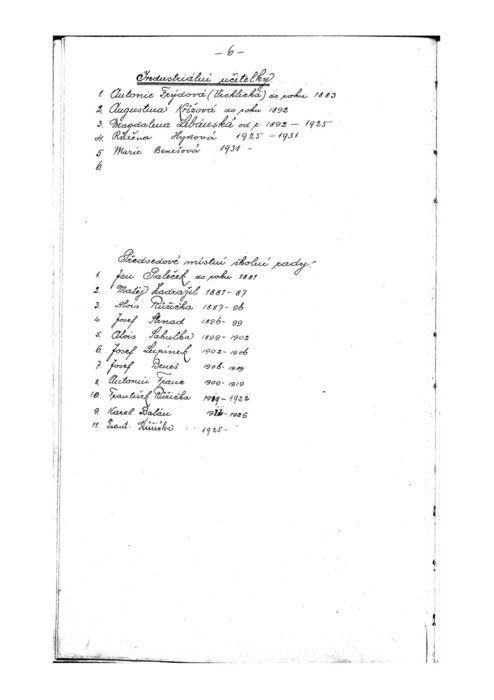 - 6 -
Industriální učitelky
1. Antonie Frýdová (Vrchlická) do roku 1883
2. Augustina Křížová do roku 1892
3. Magdalena Libánská od r. 1892 - 1925
4. Růžena Hynová 1925 - 1931
5 Marie Benešová 1931 -
6.
Předsedové místní školní rady:
1. Jan Paleček do roku 1881
2. Matěj Zadražil 1881 - 87
3. Alois Růžička 1887 - 96
4. Josef Strnad 1896 - 99
5. Alois Sahulka 1899 - 1902
6. Josef Lupínek 1902 - 1906
7. Josef Beneš 1906 - 1909
8. Antonín Franc 1909 - 1919
10. František Růžička 1919 - 1922
9. Karel Balán - 1925
11. Frant. Růžička 1925 -